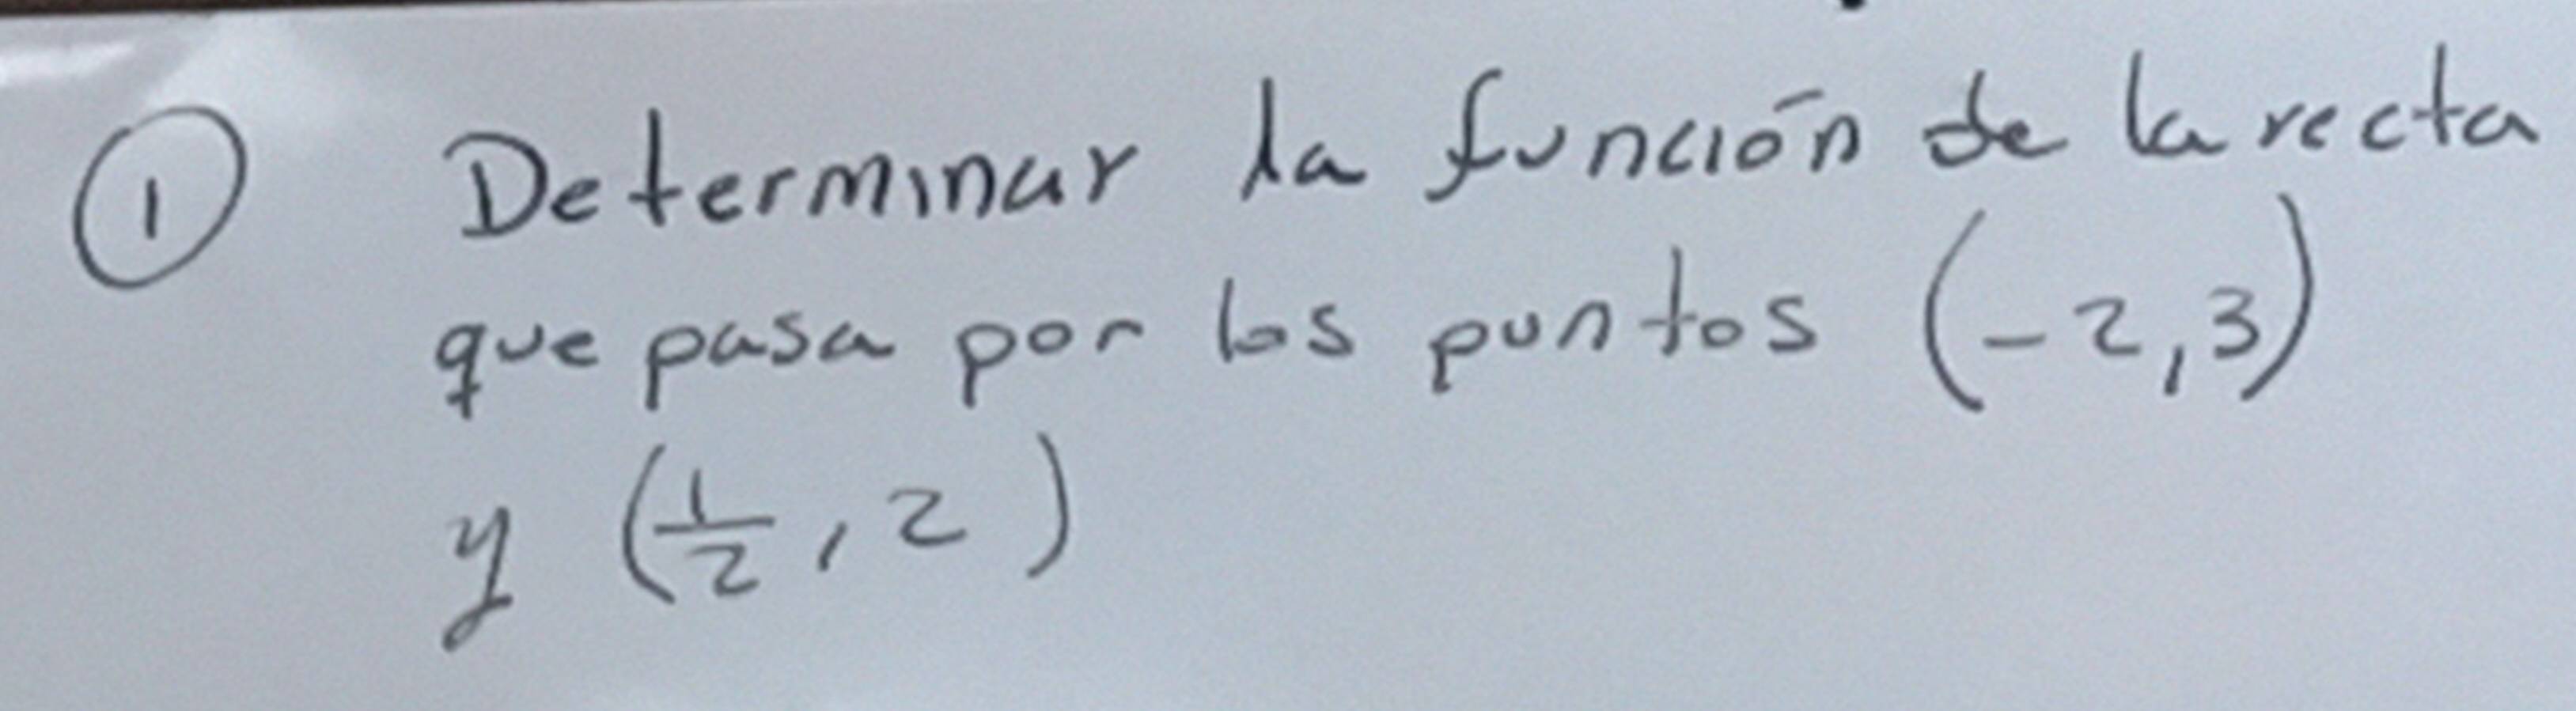 ① Determinar la función de la recta
que pasa por los puntos (-2,3)
y (1/2, 2)